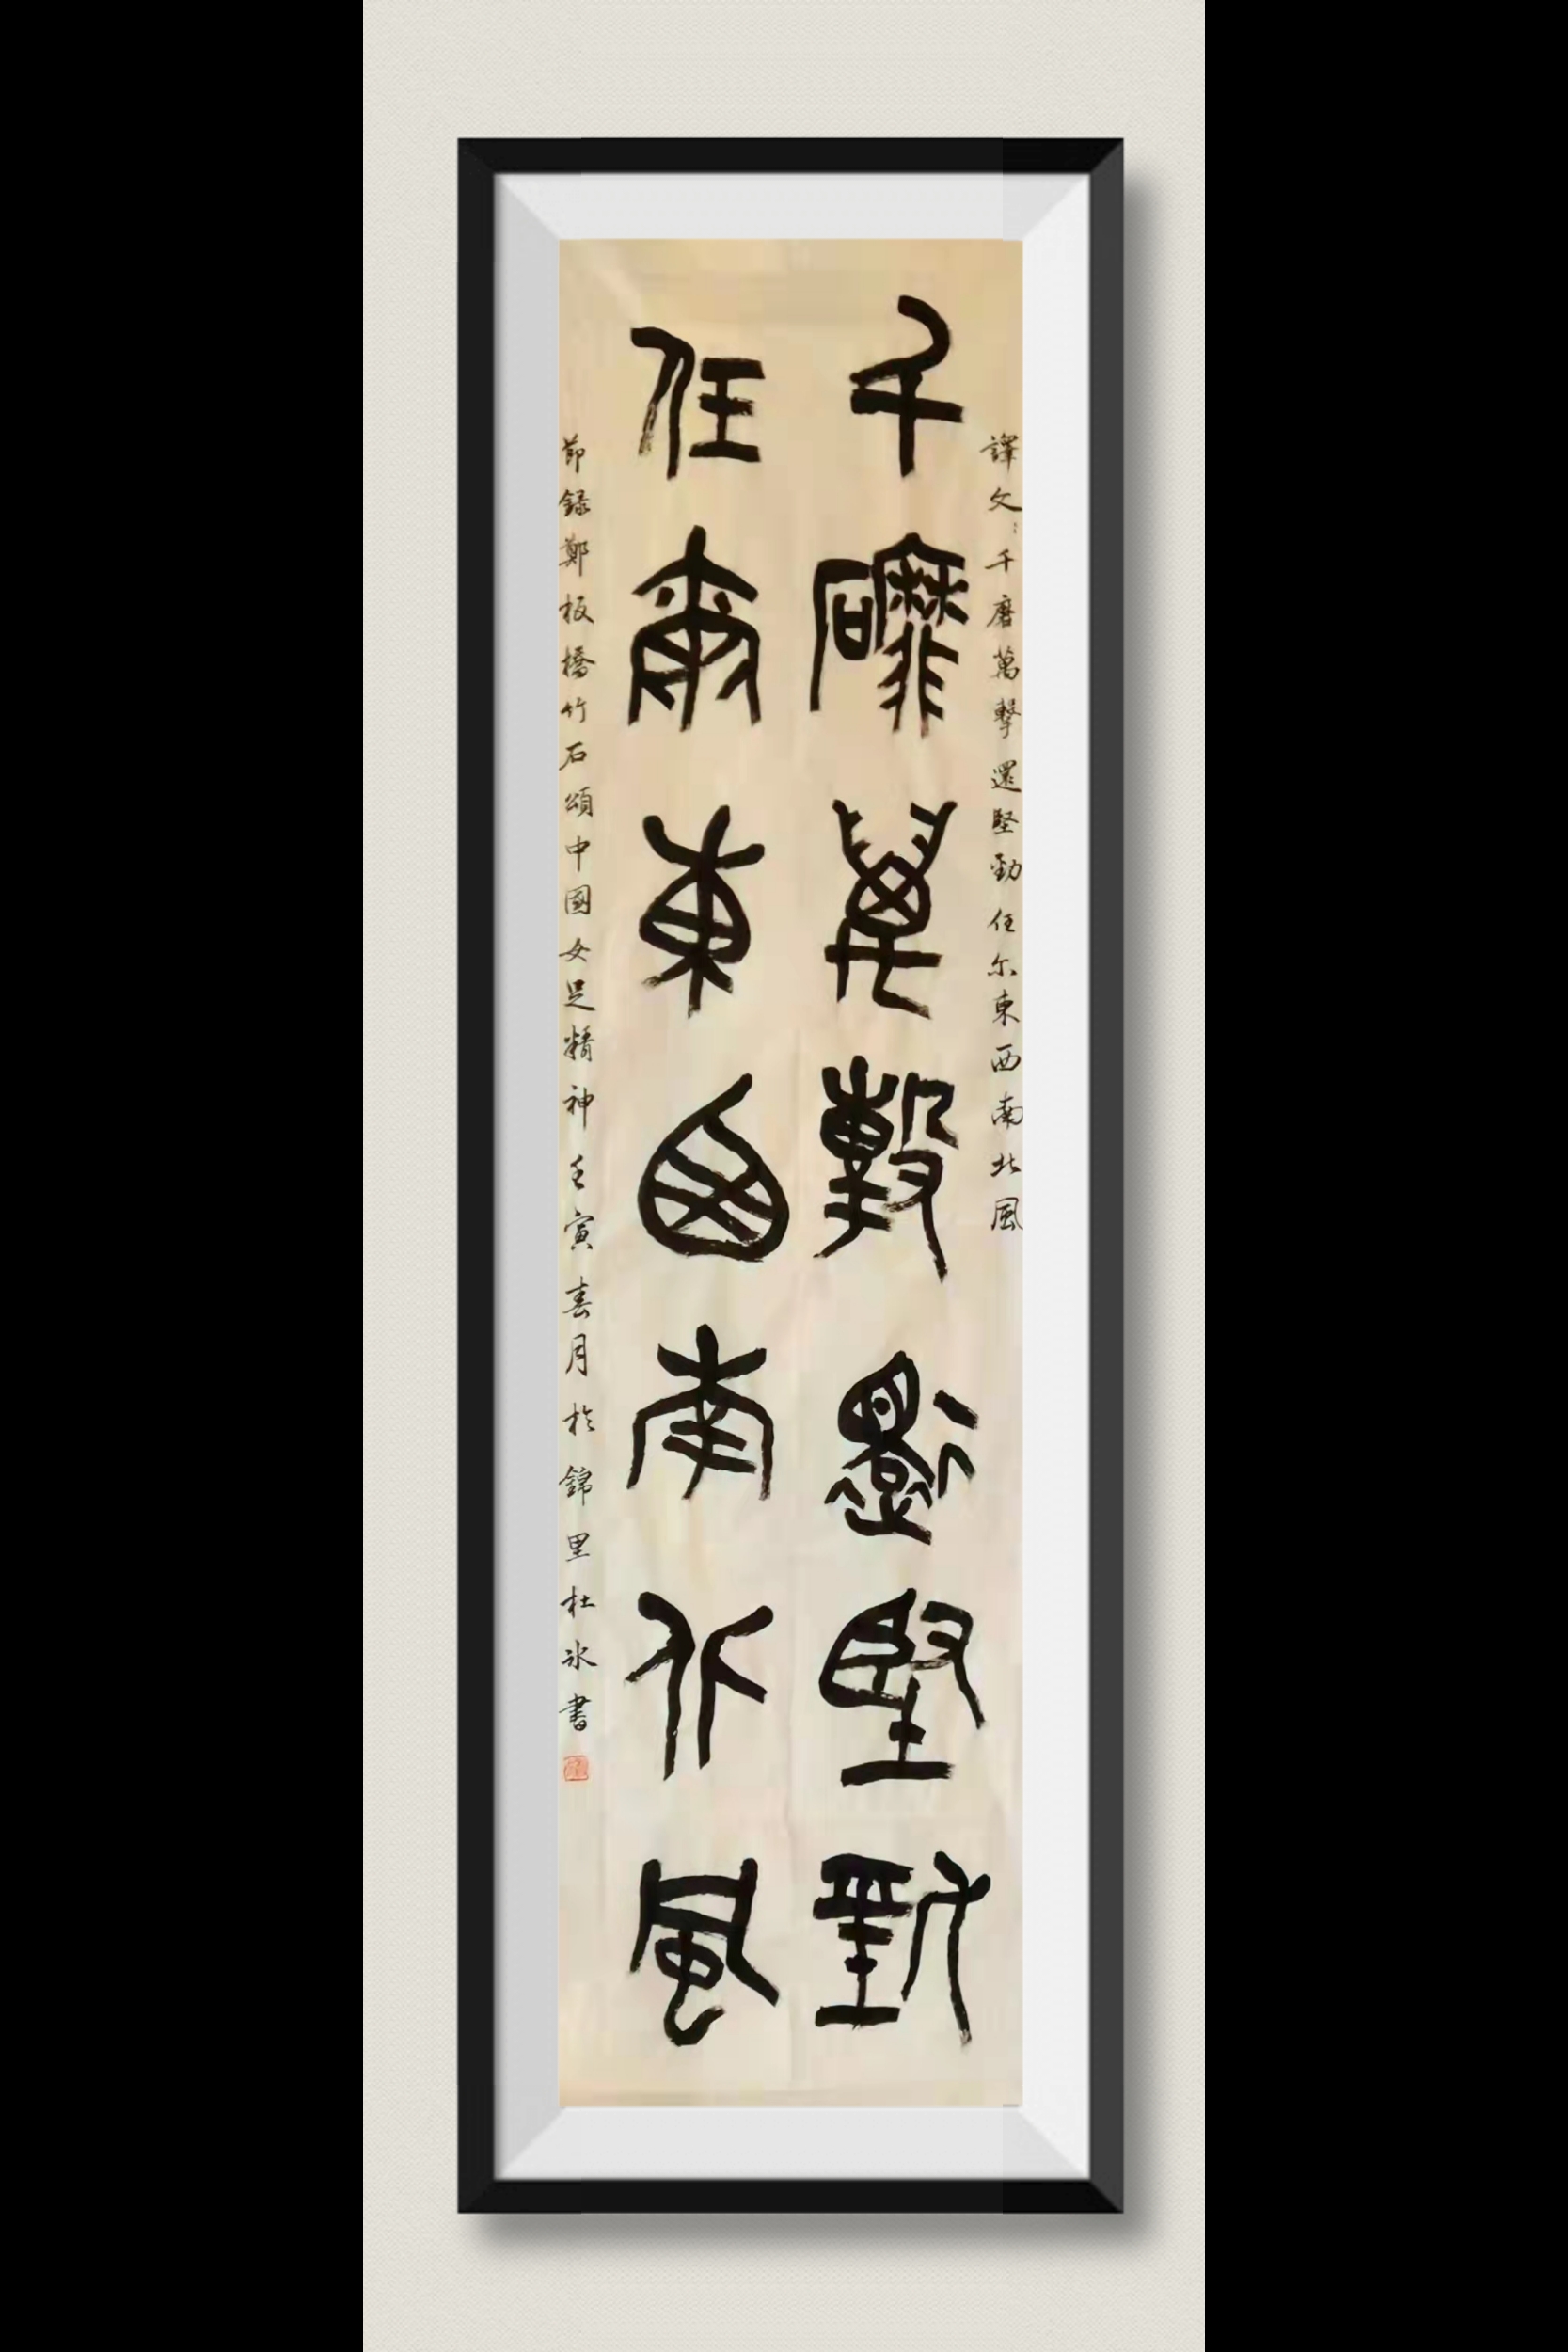 譯文：千磨萬擊還堅勁任尔東西南北風
千磨萬擊還堅勁
任爾東西南北風
節録鄭板橋竹石頌中國女足精神壬寅春月於錦里杜冰書